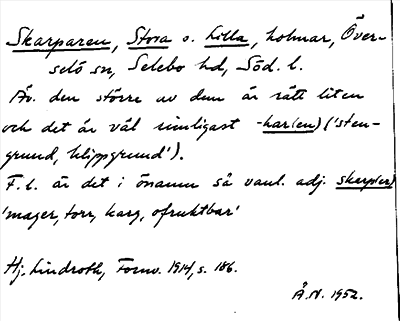 Skarparen, Stora o. Lilla, holmar, Över-
selö sn, Selebo hd, Söd. l.
Äv. den större av dem är rätt liten
och det är väl rimligast -har(en) ('sten-
grund, klippgrund').
F. l. är det i önamn så vanl. adj. skarp(er)
'mager, torr, karg, ofruktbar'
Hj. Lindroth, Fornv. 1914, s. 186.
Å.N. 1952.